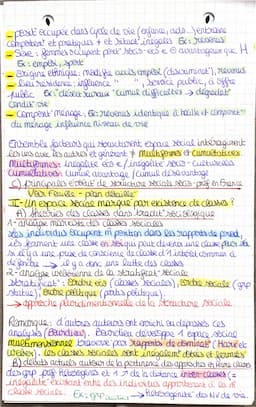 - posit° occupée dans cycle de vie (enfance, ado...) entraîne
comportemt et pratiques ≠ et situat° inégales Ex: revenus
- Sexe: femmes occupent posit° socio-éco ≠ avantageux que H
Ex: emploi, sport
- Origine ethnique: modifie accès emploi (discriminat°), revenus
- Lieu résidence: influence " " , service public, à offre
public Ex: désert ruraux cumul difficultés → dégradat°
condit° vie
- Composit° ménage: Ex: revenus identiques à taille et composit°
du ménage influence niveau de vie
Ensembles facteurs qui structurent espace social interagissent
les uns avec les autres et génèrent ≠ multiformes et cumulatives
multiformes: inégalité éco / inégalités socio-culturelles
cumulatives: cumul avantage / cumul désavantage
C) principales évolut° de structure sociale socio-prof en France
Voir Feuille - plan détaillé
II- Un espace social marqué par existence de classes ?
A) théories des classes dans traduit° sociologique
1- analyse marxiste des classes sociales
les individus occupent m position dans les rapports de prod,
ils forment une classe en soi qui peut devenir une classe pour soi
si il y a une prise de conscience de classe d'intérêt commun à
défendre → il y a donc une lutte des classes
2- analyse wébérienne de la stratificat° sociale
stratificat°: ordre éco (classes sociales), ordre sociale (grp
statut), ordre politique (partis politique).
→ approche pluridimensionnelle de la structure sociale
Remarque: d'autres auteurs ont enrichi ou dépassés ces
analyses (Bourdieu). Bourdieu développe 1 espace social
multidimensionnel traversé par rapports de dominat° (Marx et
Weber). les classes sociales sont inégalemt dotées et fermées
B) débats actuels autour de la pertinence des approches en termes class
des grp prof hétérogènes et 1 ↗ de la distance inter-classes =
inégalité existant entre des individus appartenant à la m
classe sociale. → Hétérogénéité des Niv de vie.